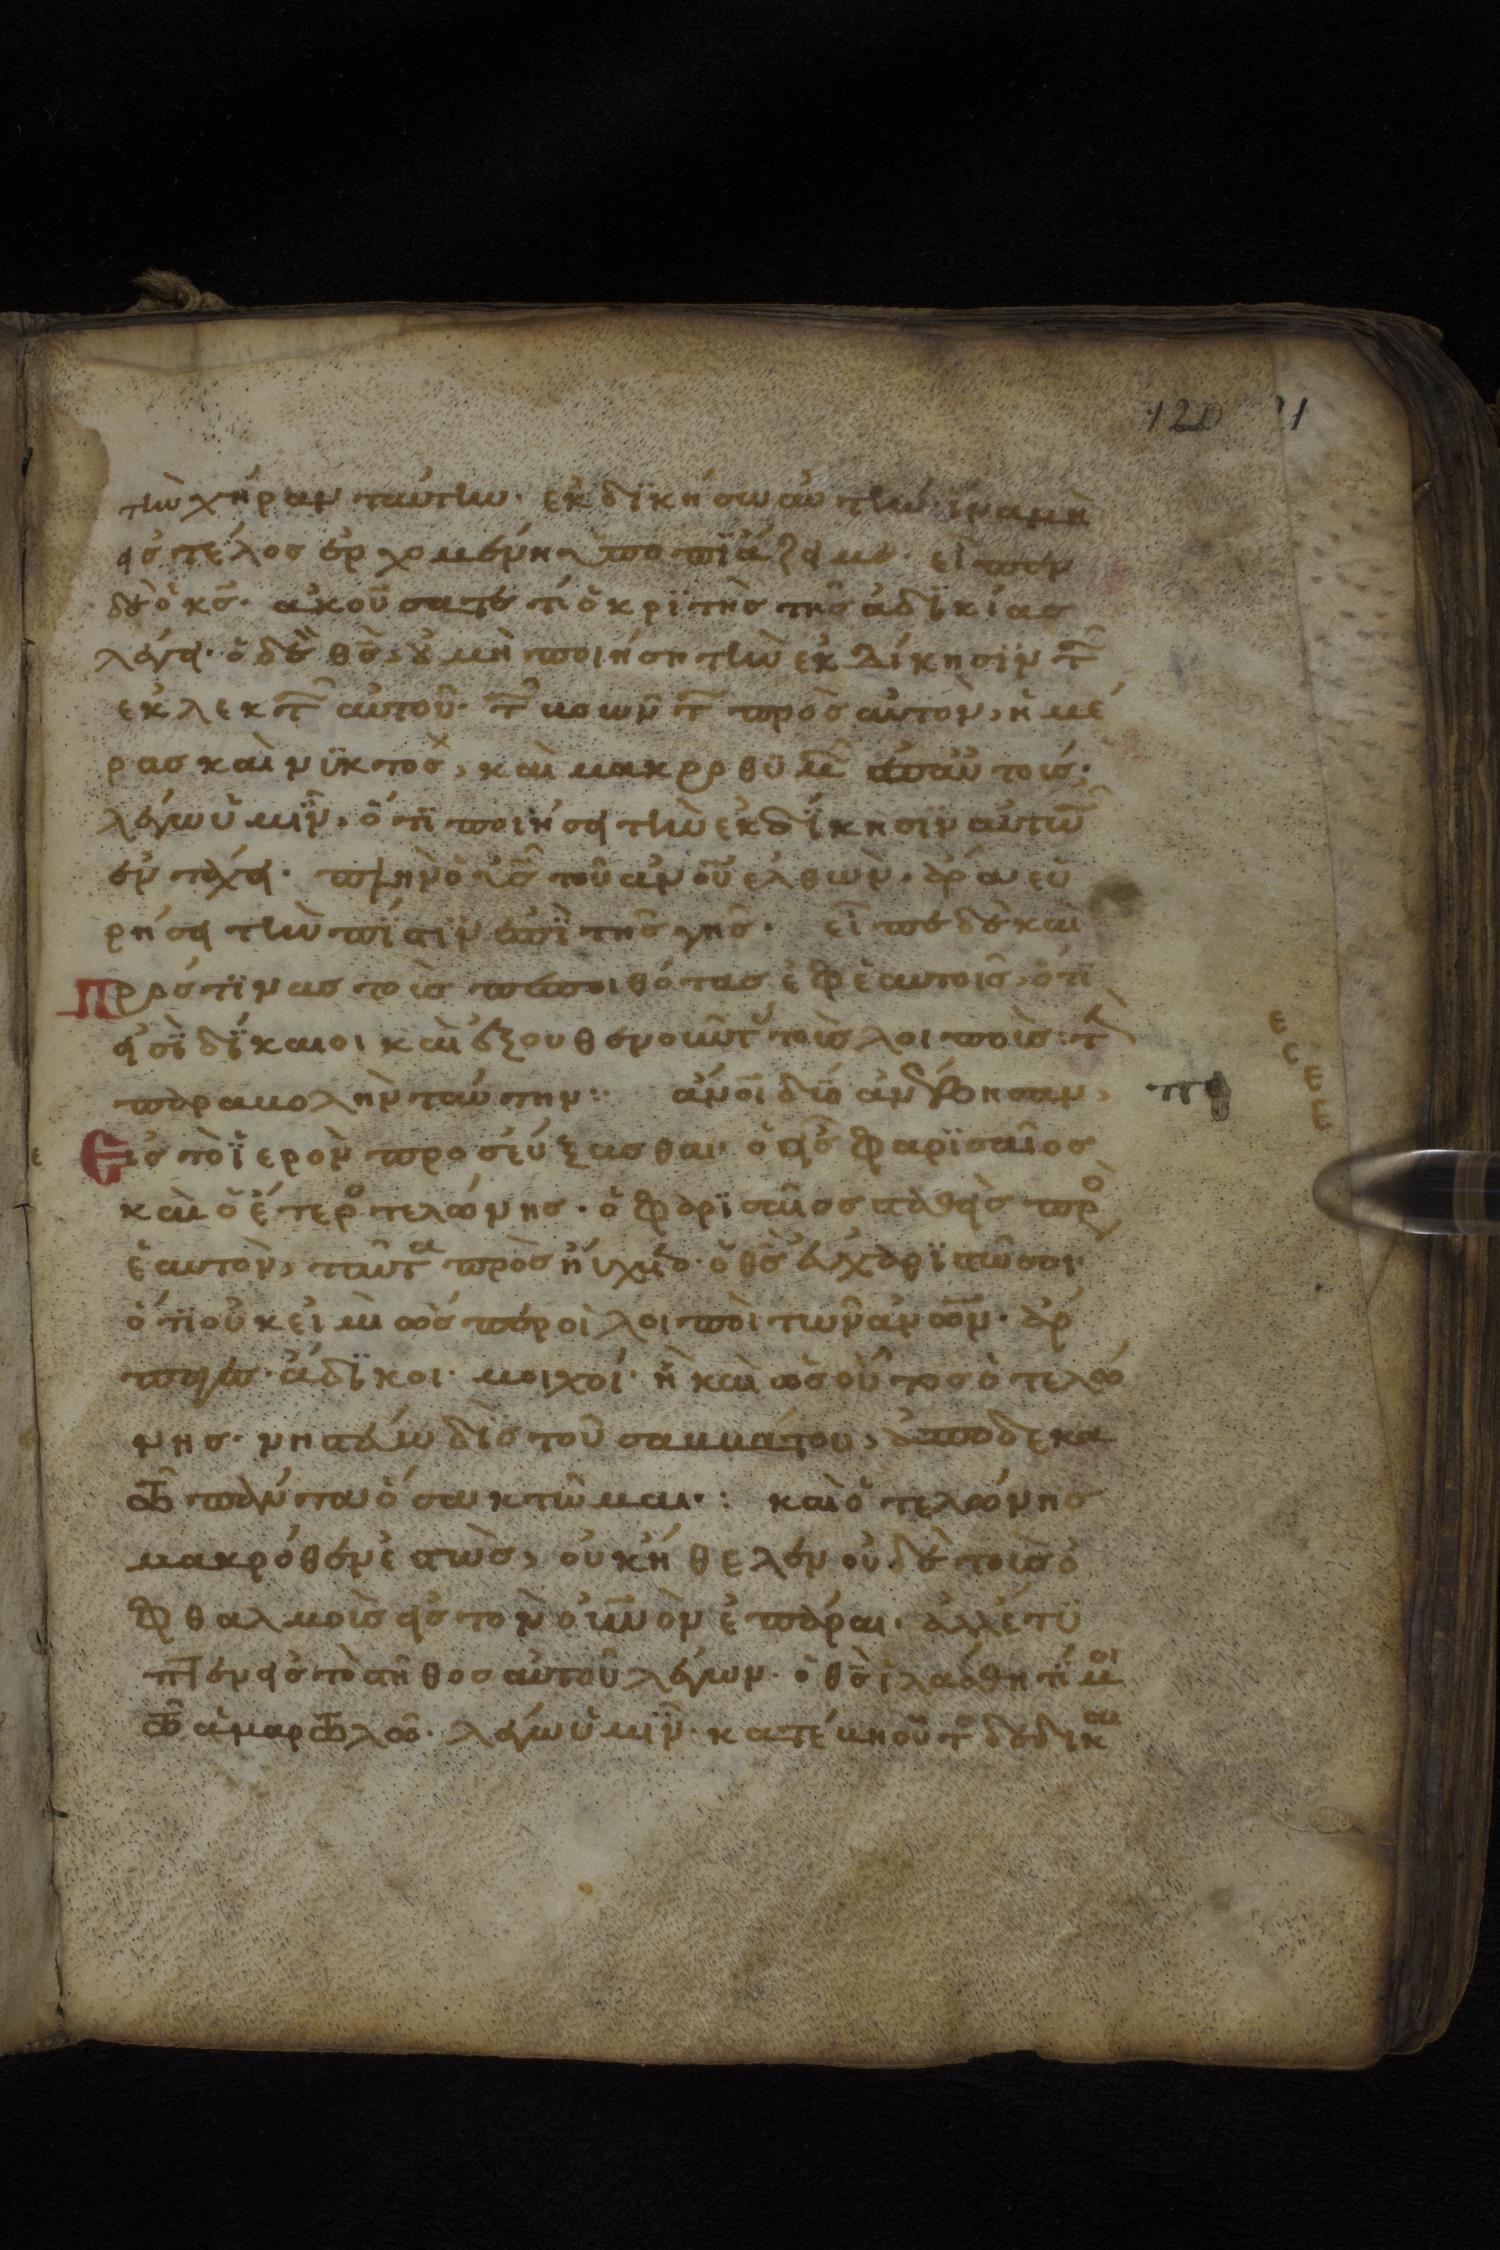 120 21
τὴν χήραν ταύτην· ἐκδϊκήσω αὐτήν· ἵνα μὴ
εἰς τέλος ἐρχομένη ὑποπϊάζει με· εἶπεν
δὲ ὁ κ̅ς· ἀκούσατε τί ὁ κρϊτὴς τῆς ἀδϊκίας
λέγει· ὁ δὲ θ̅ς, οὐ μὴ ποιήση τὴν ἐκδίκησϊν τῶν
ἐκλεκτῶν αὐτοῦ· τῶν βοων̂τ πρὸς αὐτὸν, ἡμέ
ρας καὶ νϋκτος, καὶ μακροθϋμῶν ἐπ αὐτοις·
λέγω ὑμῖν· ὅτϊ ποιήσει τὴν ἐκδίκησϊν αὐτῶν
ἐν τάχει· πλὴν ὁ υ̅ς τοῦ α̅ν̅ο̅υ ἐλθὼν· ἆρα εὑ
ρήσει τὴν πίστϊν ἐπῒ τῆς γῆς· εἶπε δὲ καὶ
πρός τϊνας τοὶς πεποιθότας ἐφ ἑαυτοῖς, ὅτϊ
εἰσῒ δίκαιοι καὶ ἐξουθενοῦντ τοὶς λοιποὶς· τὴν
παραβολὴν ταύτην: α̅ν̅ο̅ι δύο ἀνέβησαν,
Εἰς τὸ ἱερὸν προσεύξασθαι· ὁ εἷς φαρϊσαῖος
καὶ ὁ ἕτερο τελώνης· ὁ φαρϊσαῖος σταθεὶς προ
ἑαυτὸν, ταῦτα προσηύχετο· ὁ θ̅ς εὐχαρϊστῶ σοι
ὅτϊ οὐκ εἰμὶ ὡς περ οἱ λοιποὶ τῶν α̅ν̅ω̅ν· ἅρ
παγες· ἄδϊκοι· μοιχοί· ἢ καὶ ὡς οὗτος ὁ τελώ
νης· νηστεύω δὶς τοῦ σαββάτου, ἀποδεκα
τῶ πάντα ὅσα κτῶμαι·: καὶ ὁ τελώνης
μακρόθεν ἑστὼς, οὐκ ἤθελεν οὐδὲ τοὶς ὀ
φθαλμοὶς εἰς τὸν ο̅υ̅ν̅ὸν ἐπάραι· ἀλλ ἔτϋ
πτεν εἰς τὸ στῆθος αὐτοῦ λέγων· ὁ θ̅ς ἱλάσθητϊ μοι
τῶ ἁμαρτωλῶ· λέγω ὑμῖν· κατέβη οὗτο δεδικαι